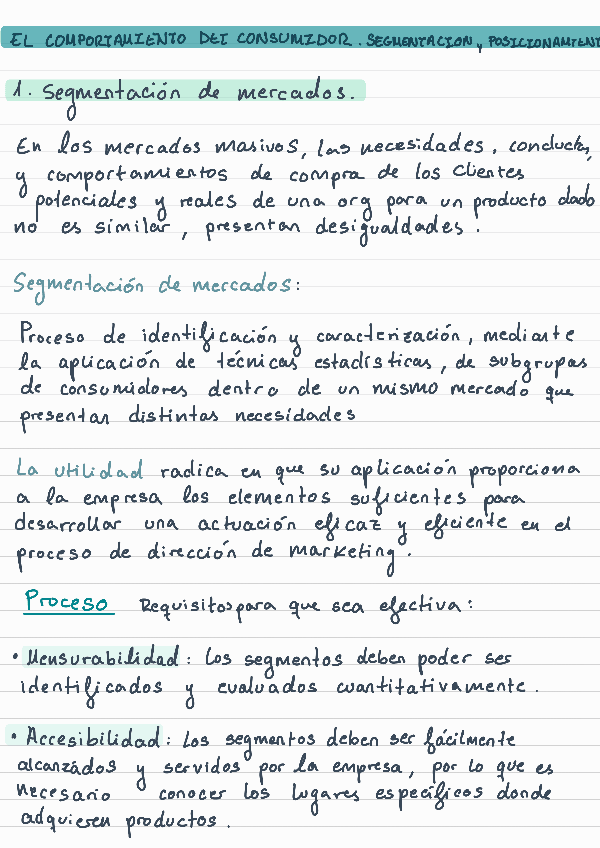 EL COMPORTAMIENTO DEL CONSUMIDOR. SEGMENTACION y POSICIONAMIENT
1. Segmentación de mercados.
En los mercados masivos, las necesidades, conductas,
y comportamientos de compra de los clientes
potenciales y reales de una org para un producto dado
no es similar, presentan desigualdades.
Segmentación de mercados:
Proceso de identificación y caracterización, mediante
la aplicación de técnicas estadísticas, de subgrupos
de consumidores dentro de un mismo mercado que
presentan distintas necesidades
La utilidad radica en que su aplicación proporciona
a la empresa los elementos suficientes para
desarrollar una actuación eficaz y eficiente en el
proceso de dirección de marketing.
Proceso Requisitos para que sea efectiva:
• Mensurabilidad: Los segmentos deben poder ser
identificados y evaluados cuantitativamente.
• Accesibilidad: Los segmentos deben ser fácilmente
alcanzados y servidos por la empresa, por lo que es
necesario conocer los lugares específicos donde
adquieren productos.